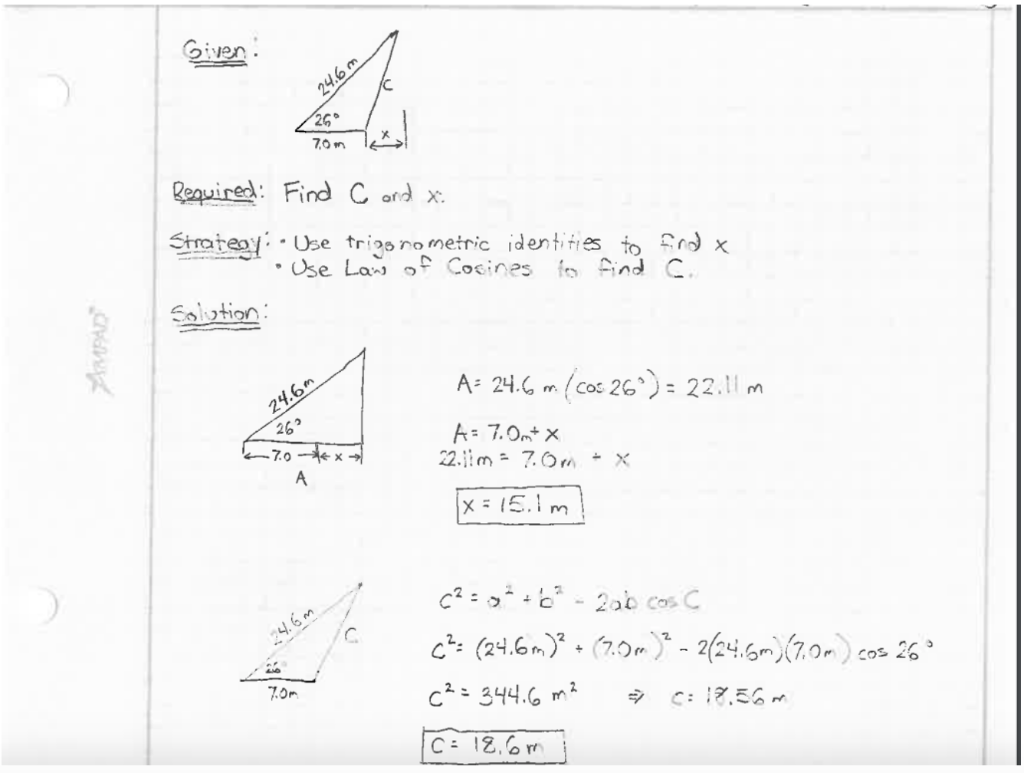 Given:
24.6 m
C
26°
7.0 m
x
Required: Find C and x.
Strategy: • Use trigonometric identities to find x
• Use Law of Cosines to find C.
Solution:
AMPAD
24.6 m
26°
7.0
x
A
A = 24.6 m (cos 26°) = 22.11 m
A = 7.0m + x
22.11m = 7.0m + x
x = 15.1 m
24.6 m
C
26°
7.0m
c² = a² + b² - 2ab cos C
c² = (24.6m)² + (7.0m)² - 2(24.6m)(7.0m) cos 26°
c² = 344.6 m² ⇒ c = 18.56 m
C = 18.6 m